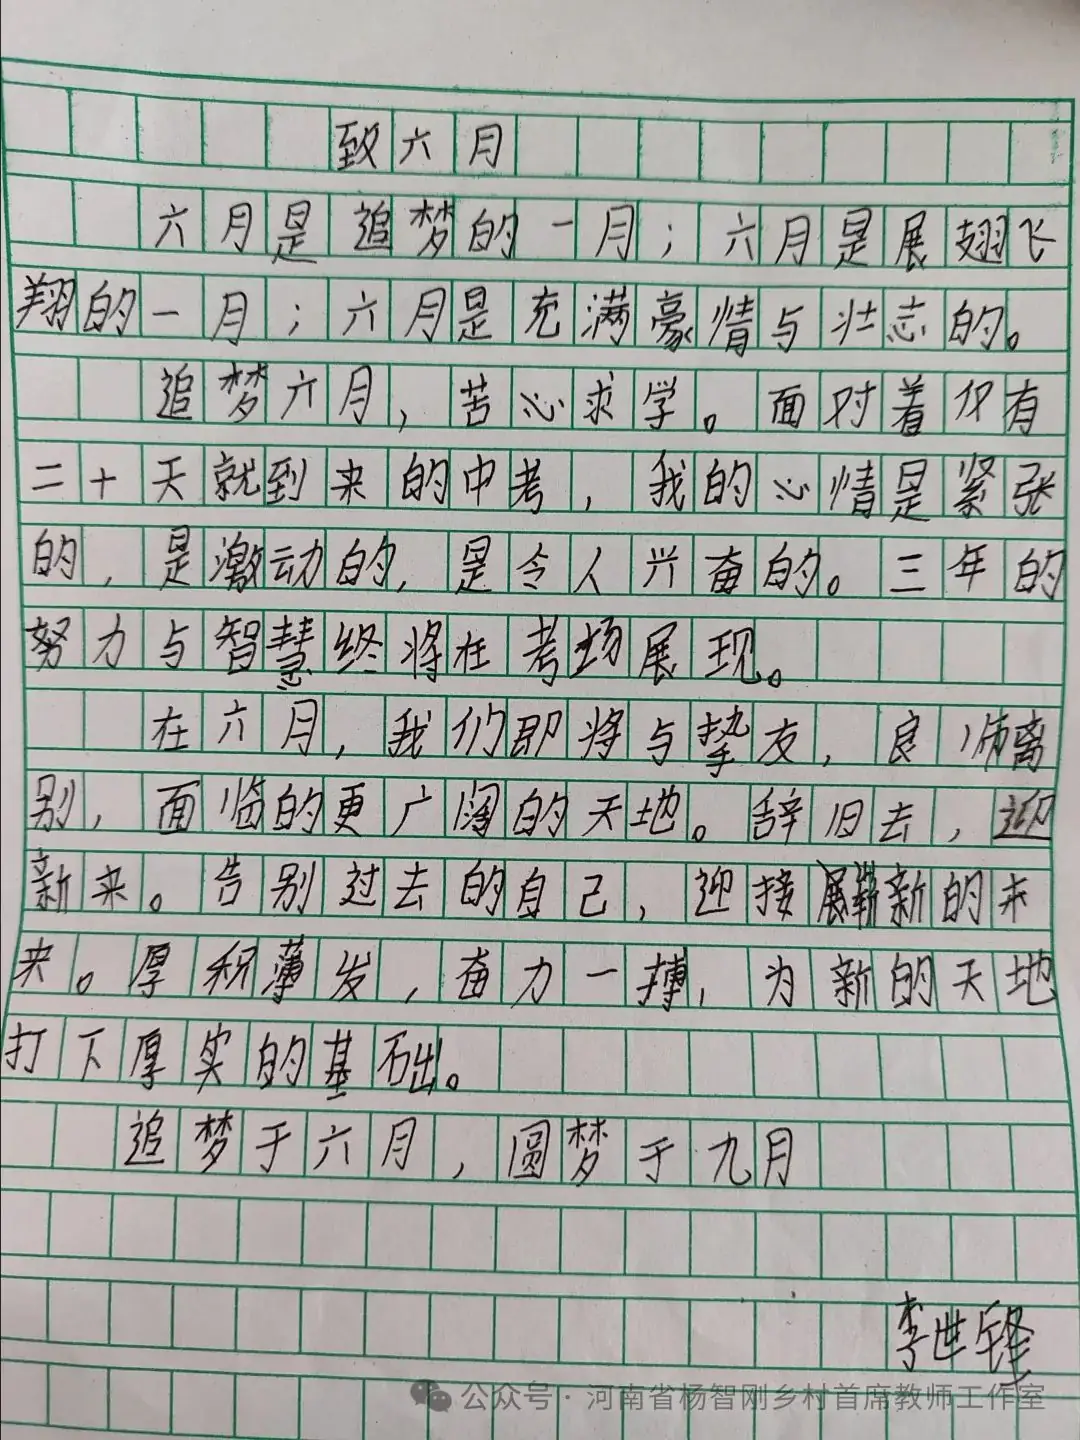 致六月
六月是追梦的一月；六月是展翅飞
翔的一月；六月是充满豪情与壮志的。
追梦六月，苦心求学。面对着仅有
二十天就到来的中考，我的心情是紧张
的，是激动的，是令人兴奋的。三年的
努力与智慧终将在考场展现。
在六月，我们即将与挚友，良师离
别，面临的更广阔的天地。辞旧去，迎
新来。告别过去的自己，迎接崭新的未
来。厚积薄发，奋力一搏，为新的天地
打下厚实的基础。
追梦于六月，圆梦于九月
李世锋
公众号·河南省杨智刚乡村首席教师工作室